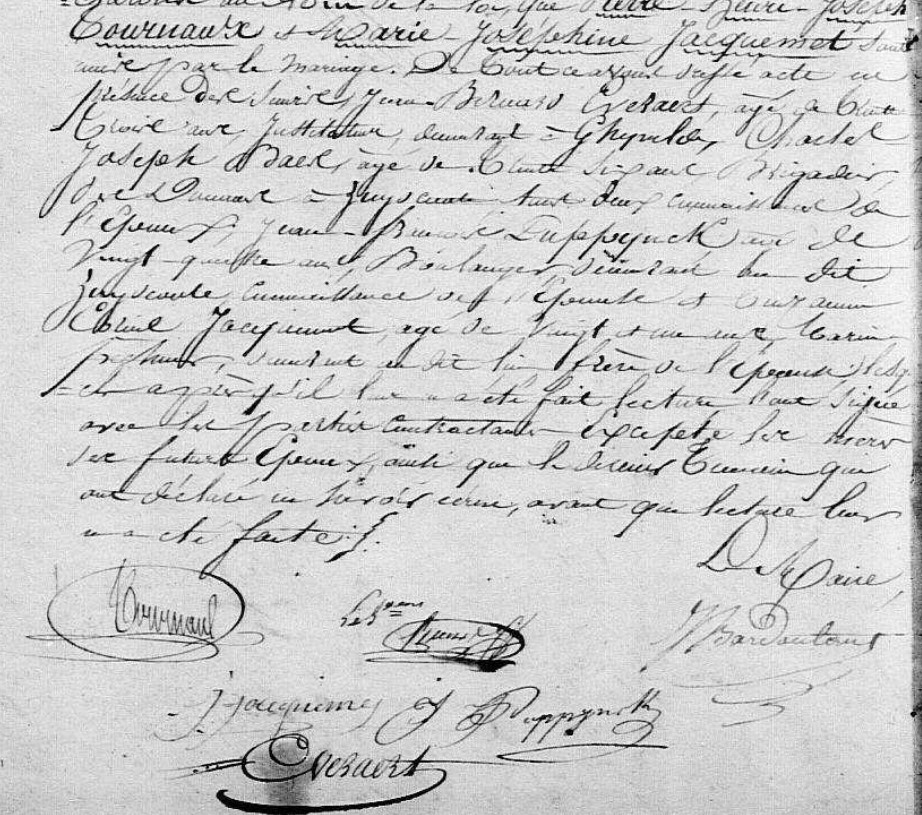 déclaré au nom de la loi, que Pierre-Henri-Joseph
Tournaux et Marie-Joséphine Jacquemet sont
unis par le Mariage. De tout ce avons dressé acte en
présence des Sieurs Jean-Bernard Everaert, âgé de trente
trois ans, Instituteur, demeurant à Ghyvelde, Charles
Joseph Baes, âgé de trente six ans Brigadier
des Douanes à Zuydcoote tous deux connaissances de
l'Epoux, Jean-Benoit Puppynck âgé de
Vingt-quatre ans, Boulanger, demeurant au dit
Zuydcoote, Connaissance de l'Epouse et
Jacquemet, agé de vingt et un ans, Marin
Pêcheur, demeurant au dit lieu frère de l'épouse
après qu'il leur en a été fait lecture l'ont signé
avec les parties contractantes excepté les mères
des futurs Epoux, ainsi que le témoin qui
ont déclaré ne savoir écrire, avant que lecture leur
en a été faite.
Le Maire
Tournaux
Jacquemet J Puppynck
Everaert